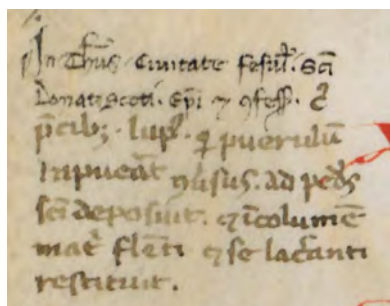 In Thus̄ Ciuitate Fesul̄. Sc̄i
Donati Scoti. Ep̄i ⁊ ꝯfess̄. c̄
p̄cibꝫ. lup̄. q̇ puerulū
rapueāt ꝯ̄usus. ad ped̄s
sc̄i deposuit. ⁊ īcolumē
mat̄ flēti ⁊ se lac̄anti
restituit.